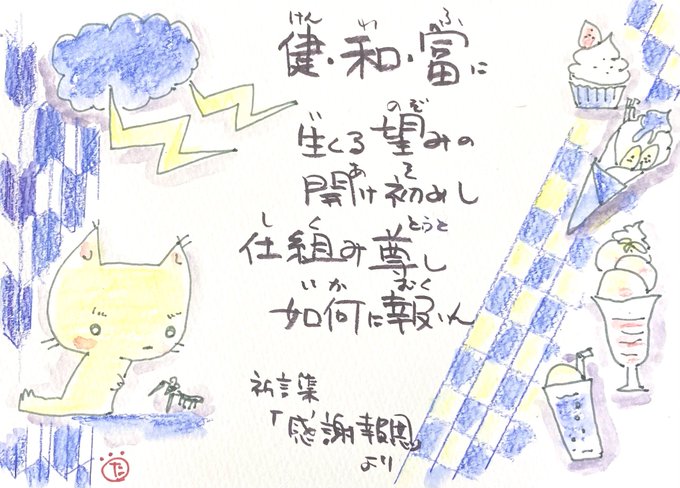 けん わ ふ
健・和・富に
のぞ
生くる望みの
あ そ
開け初めし
し く とうと
仕組み尊し
いか むく
如何に報いん
祈言集
「感謝報恩」
より
た